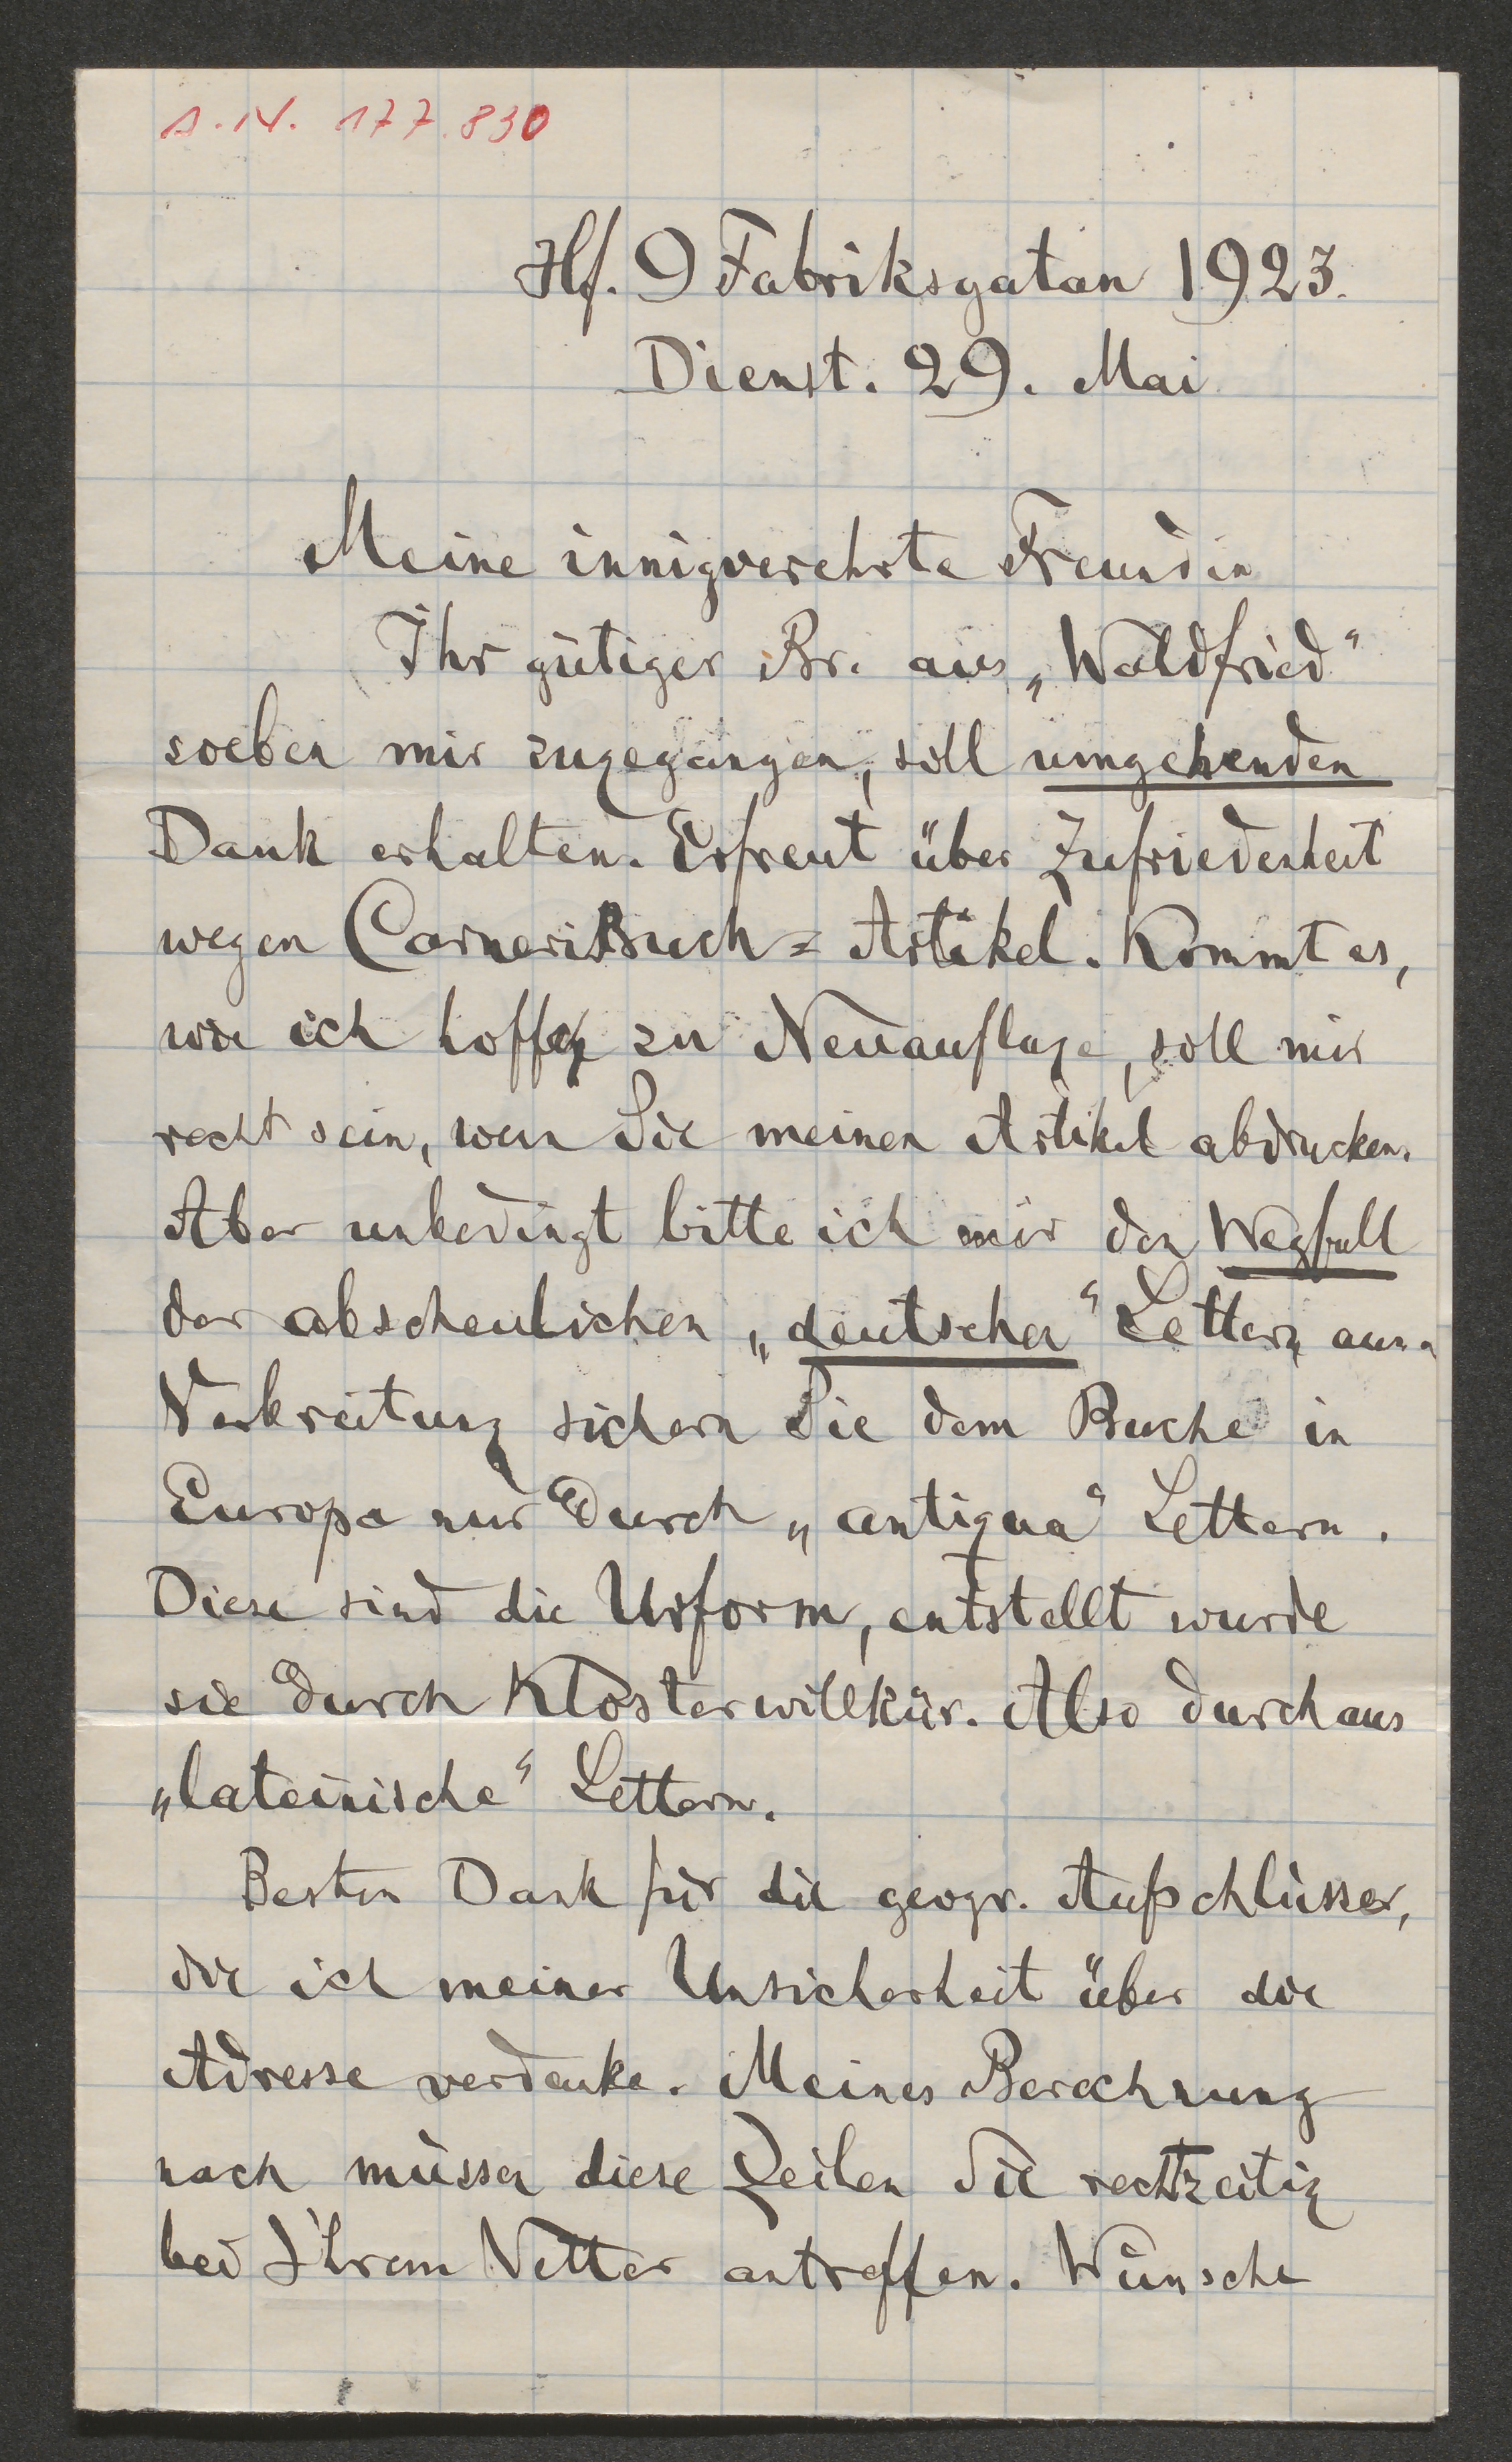 A.N. 177.830
Hf. 9 Fabriksgatan 1923.
Dienst. 29. Mai
Meine innigverehrte Freundin
Ihr gütiger Br. aus „Waldfried“
soeben mir zugegangen, soll umgehenden
Dank erhalten. Erfreut über Zufriedenheit
wegen CarneriBuch= Artikel. Kommt es,
wie ich hoffe, zu Neuauflage, soll mir
recht sein, wen Sie meinen Artikel abdrucken.
Aber unbedingt bitte ich mir den Wegfall
der abscheulichen „deutschen“ Lettern aus.
Verbreitung sichern Sie dem Buche in
Europa nur durch „antiqua“ Lettern.
Diese sind die Urform, entstellt wurde
sie durch Klosterwillkür. Also durchaus
„lateinische“ Lettern.
Besten Dank für die geogr. Aufschlüsse,
die ich meiner Unsicherheit über die
Adresse verdanke. Meines Berechnung
nach müssen diese Zeilen Sie rechtzeitig
bei Ihrem Vetter antreffen. Wünsche